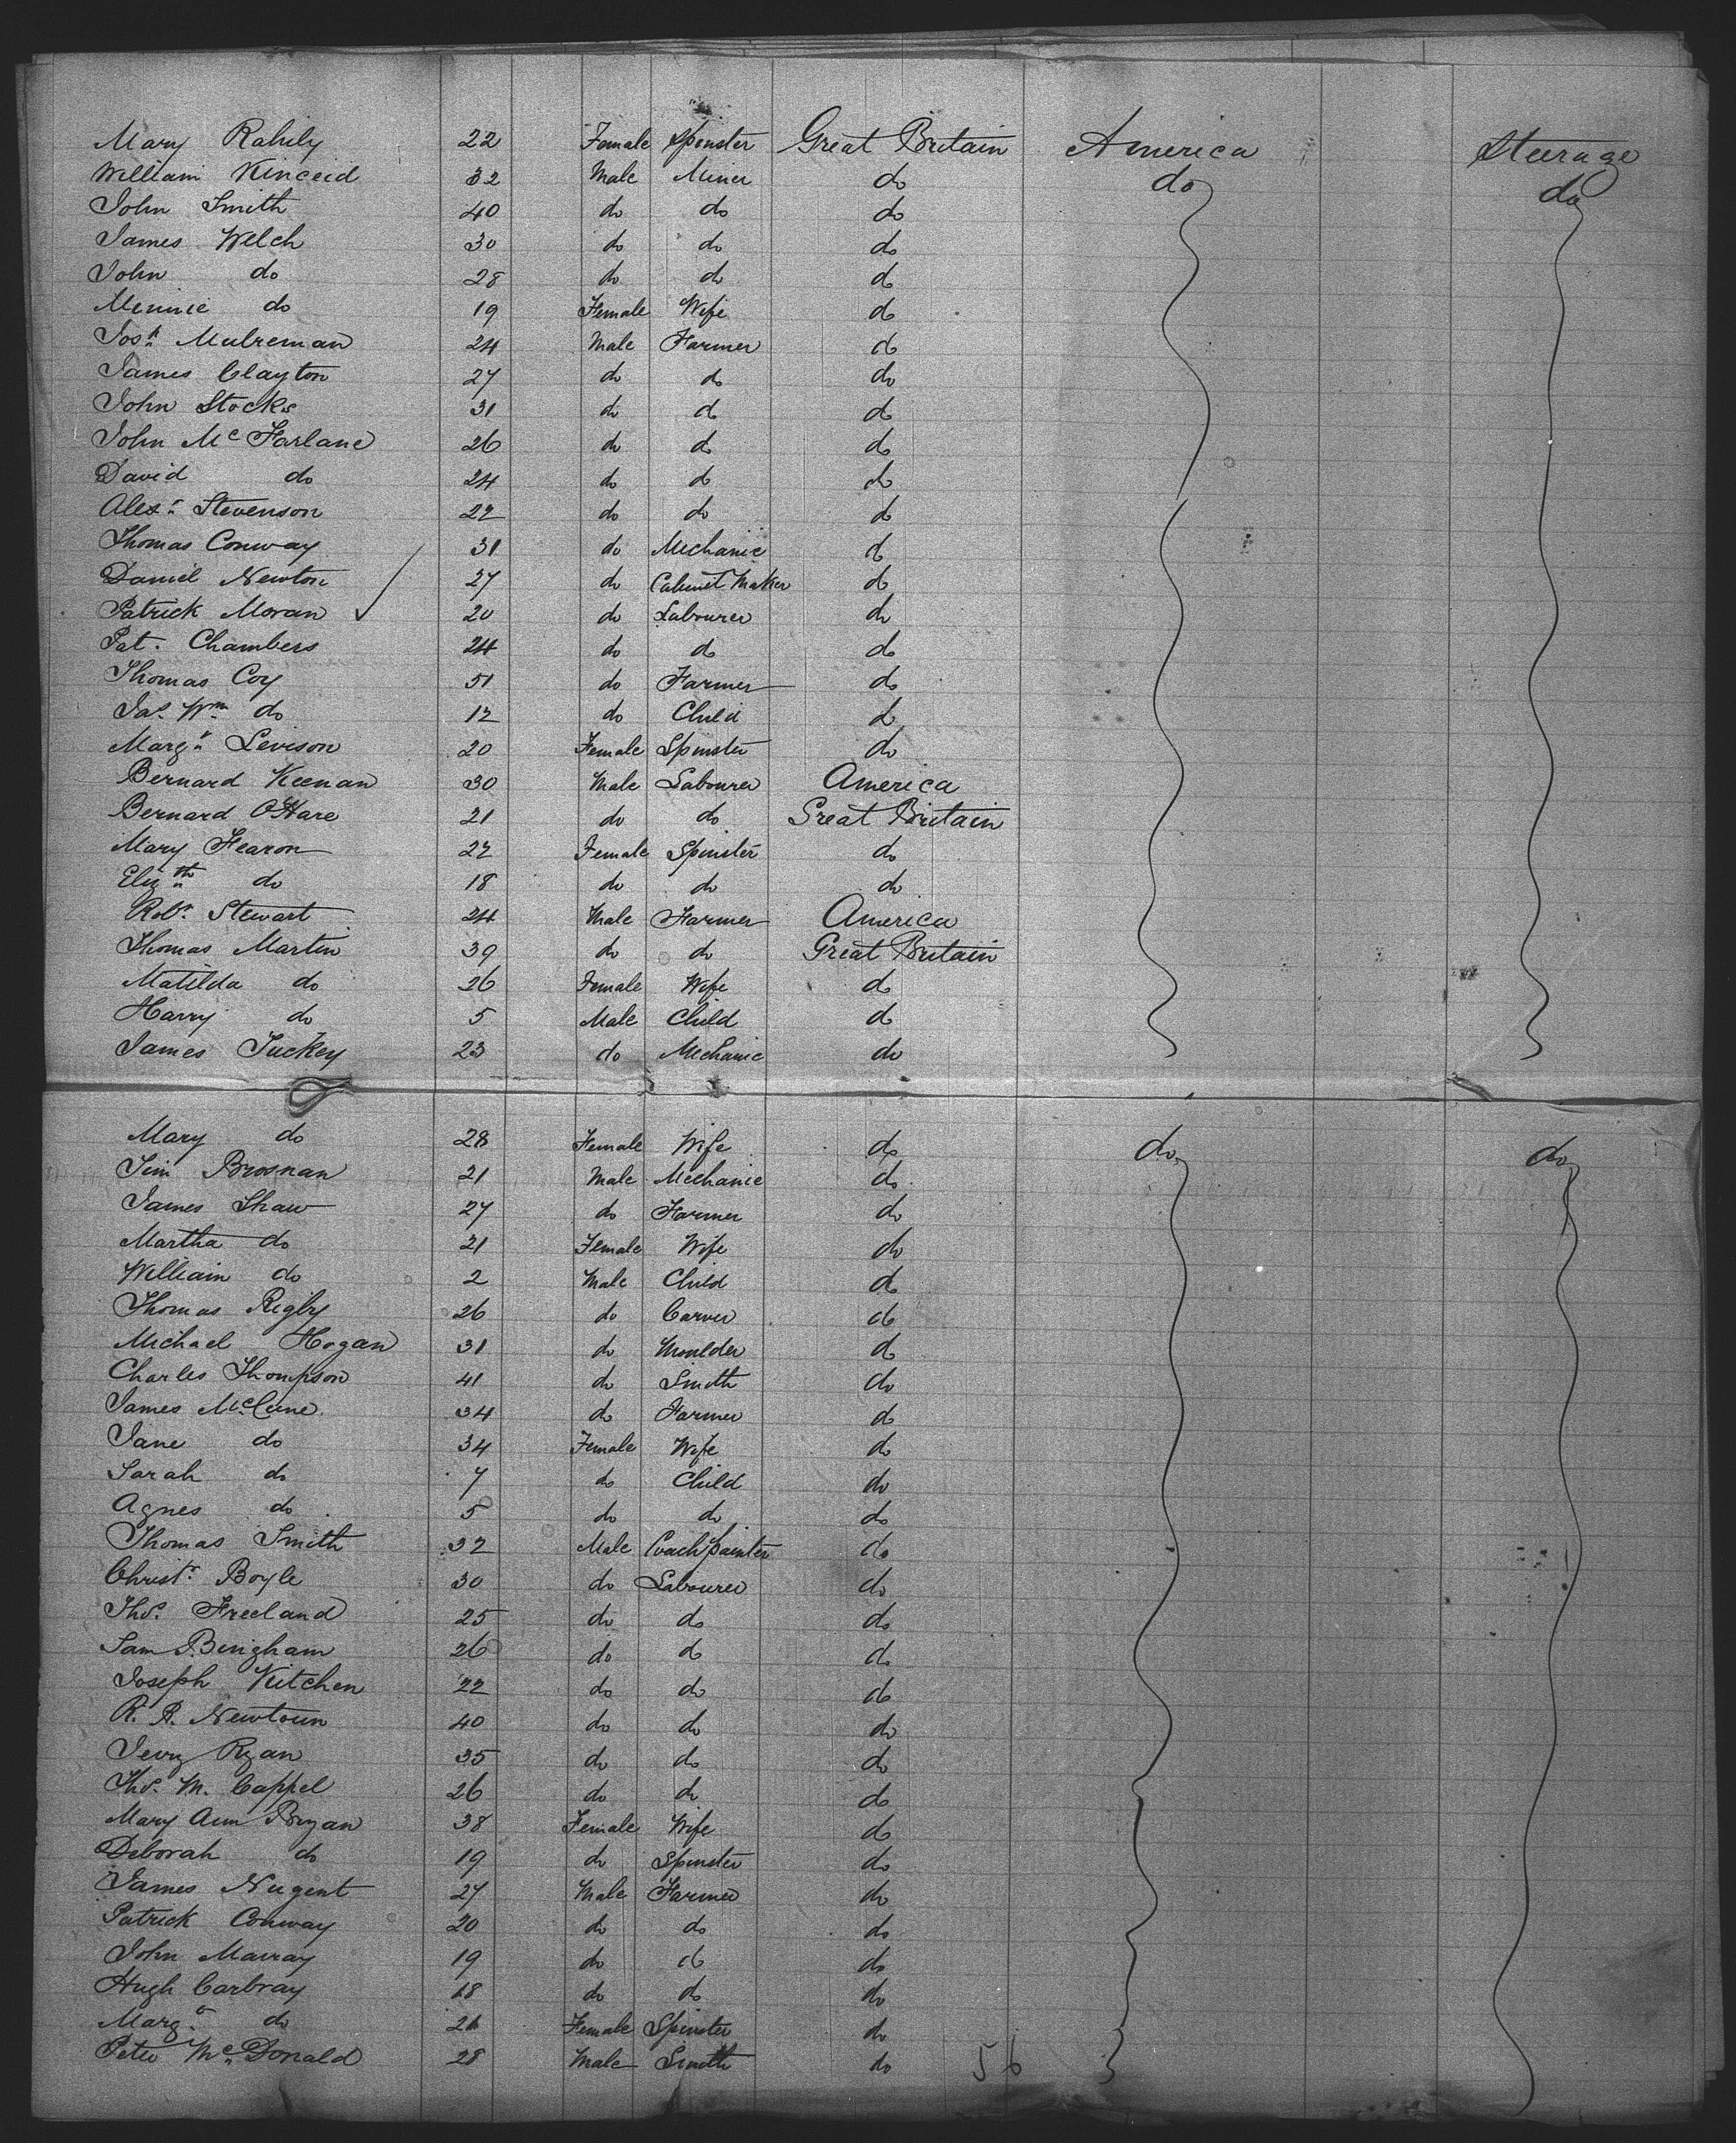 Mary Rahily 22 Female Spinster Great Britain America Steerage
William Kinceid 32 Male Miner do do do
John Smith 40 do do do
James Welch 30 do do do
John do 28 do do do
Minnie do 19 Female Wife do
Josh Mulrenan 24 Male Farmer do
James Clayton 27 do do do
John Stocks 31 do do do
John McFarlane 26 do do do
David do 24 do do do
Alexr Stevenson 22 do do do
Thomas Conway 31 do Mechanic do
Daniel Newton 27 do Cabinet Maker do
Patrick Moran 20 do Labourer do
Pat. Chambers 24 do do do
Thomas Coy 51 do Farmer do
Jas. Wm do 12 do Child do
Margt Levison 20 Female Spinster do
Bernard Keenan 30 Male Labourer America
Bernard O'Hare 21 do do Great Britain
Mary Fearon 22 Female Spinster do
Elizth do 18 do do do
Robt Stewart 24 Male Farmer America
Thomas Martin 39 do do Great Britain
Matilda do 26 Female Wife do
Harry do 5 Male Child do
James Tuckey 23 do Mechanic do
Mary do 28 Female Wife do do do
Tim Brosnan 21 Male Mechanic do
James Shaw 27 do Farmer do
Martha do 21 Female Wife do
William do 2 Male Child do
Thomas Rigby 26 do Carver do
Michael Hogan 31 do Moulder do
Charles Thompson 41 do Smith do
James McCune 34 do Farmer do
Jane do 34 Female Wife do
Sarah do 7 do Child do
Agnes do 5 do do do
Thomas Smith 32 Male Coach painter do
Christr Boyle 30 do Labourer do
Thos. Freeland 25 do do do
Sam Bingham 26 do do do
Joseph Kitchen 22 do do do
R. R. Newtoun 40 do do do
Jerry Ryan 35 do do do
Thos. M. Cappel 26 do do do
Mary Ann Bryan 38 Female Wife do
Deborah do 19 do Spinster do
James Nugent 27 Male Farmer do
Patrick Conway 20 do do do
John Murray 19 do do do
Hugh Carbray 18 do do do
Margt do 21 Female Spinster do
Peter McDonald 28 Male Smith do 56